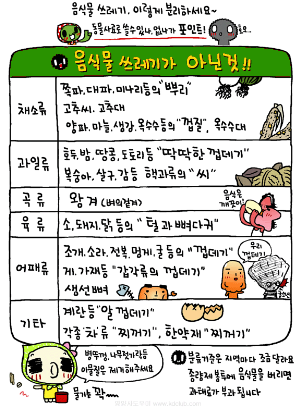 음식물 쓰레기, 이렇게 분리하세요~
동물사료로 쓸수있나, 없나가 포인트!
음식물 쓰레기가 아닌것!!
채소류
쪽파, 대파, 미나리등의 "뿌리"
고추씨, 고추대
양파, 마늘, 생강, 옥수수등의 "껍질", 옥수수대
과일류
호두, 밤, 땅콩, 도토리등 "딱딱한 껍데기"
복숭아, 살구, 감등 핵과류의 "씨"
곡류
왕겨 (벼의겉겨)
음식물
육류
소, 돼지, 닭등의 "털과 뼈다귀"
어패류
조개, 소라, 전복, 멍게, 굴등의 "껍데기"
게, 가재등 "갑각류의 껍데기"
생선뼈
우리
껍데기
기타
계란등 "알껍데기"
각종차류 "찌꺼기", 한약재 "찌꺼기"
병뚜껑, 나무젓가락등
이물질은 제거해주세요
물기는 꽉~
분류기준은 지역마다 조금 달라요
종량제 봉투에 음식물을 버리면
과태료가 부과됩니다